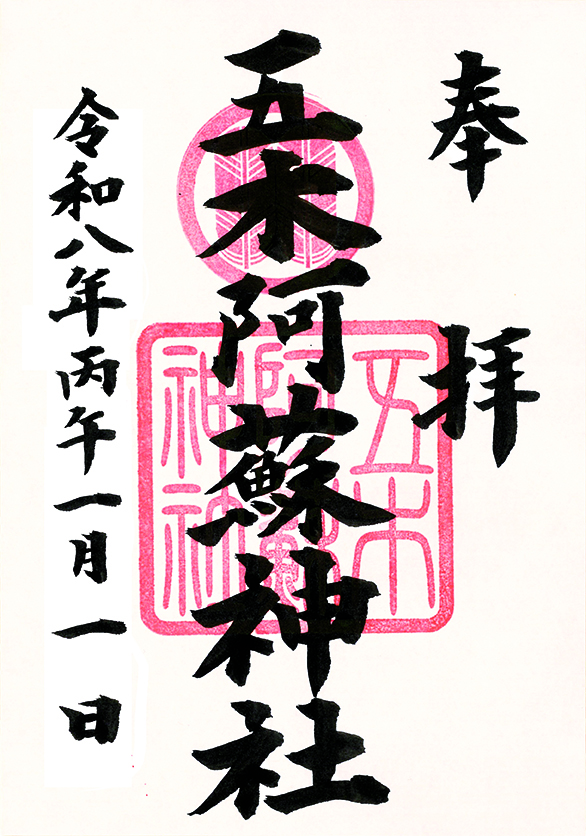 奉拝
五木阿蘇神社
五木阿蘇神社
令和八年丙午一月一日